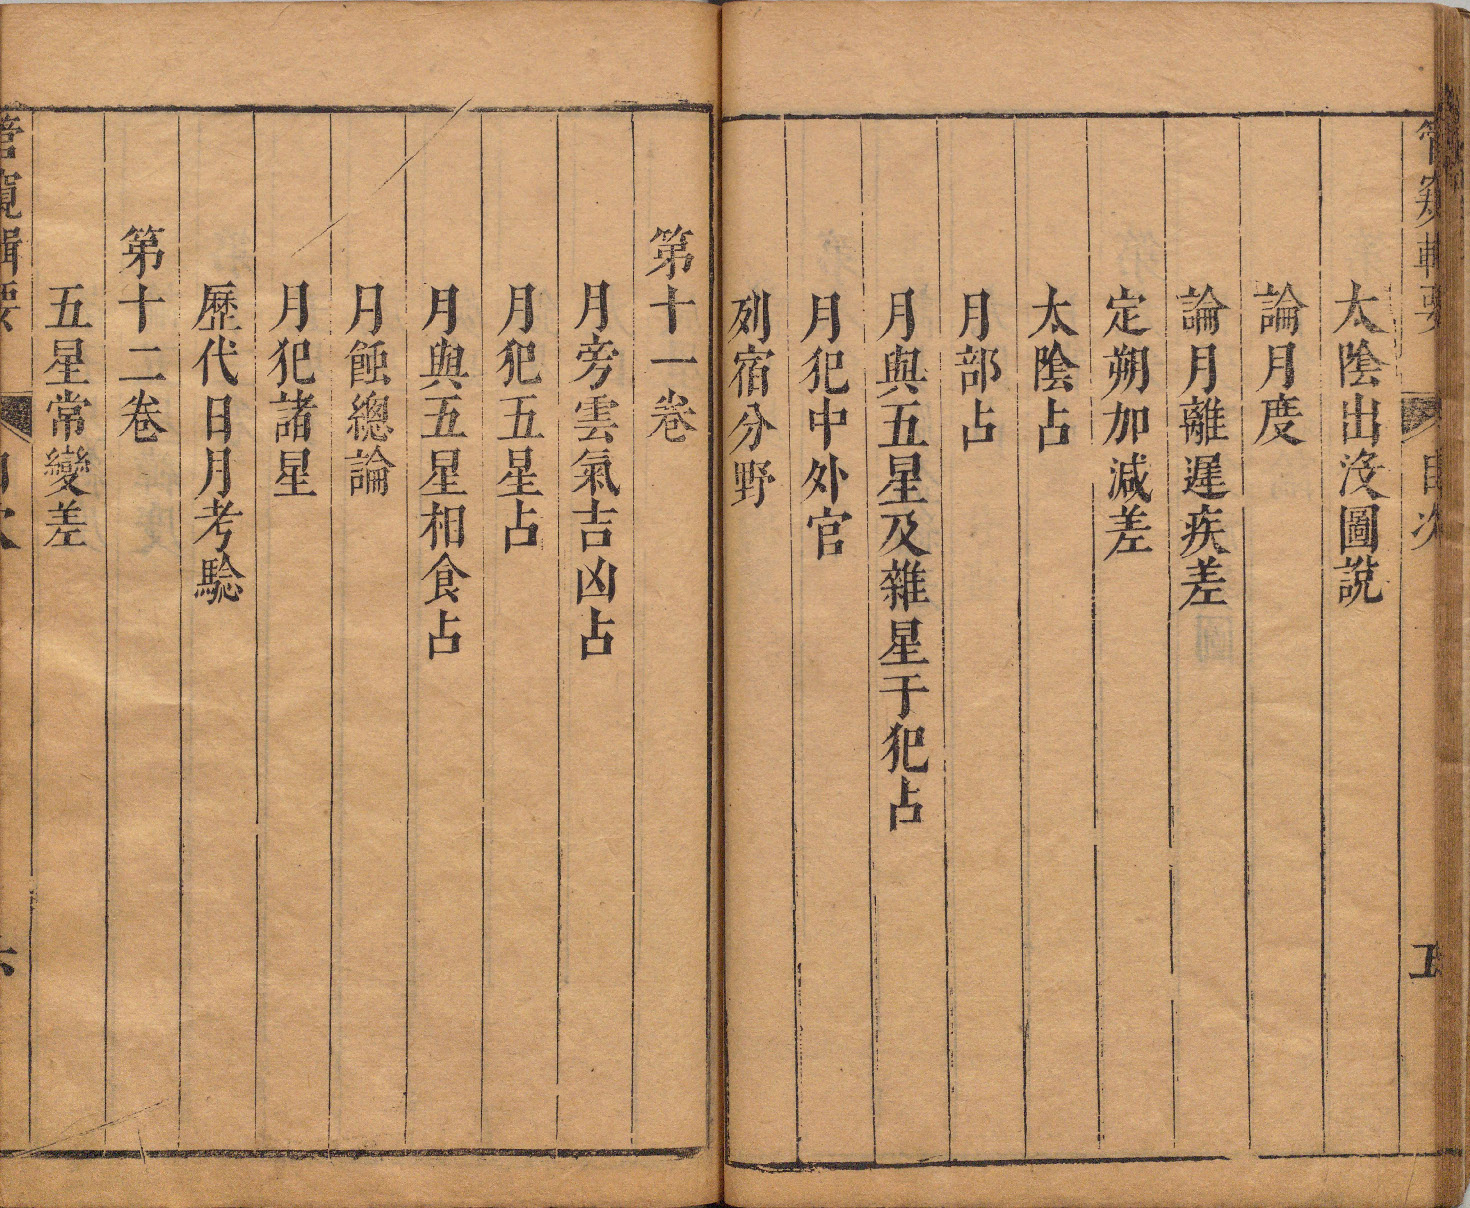 管窺輯要
目次
五
太陰出沒圖說
論月度
論月離遲疾差
定朔加減差
太陰占
月部占
月與五星及雜星于犯占
月犯中外官
列宿分野
第十一卷
月旁雲氣吉凶占
月犯五星占
月與五星相食占
月蝕總論
月犯諸星
歷代日月考驗
第十二卷
五星常變差
管窺輯要
目次
六